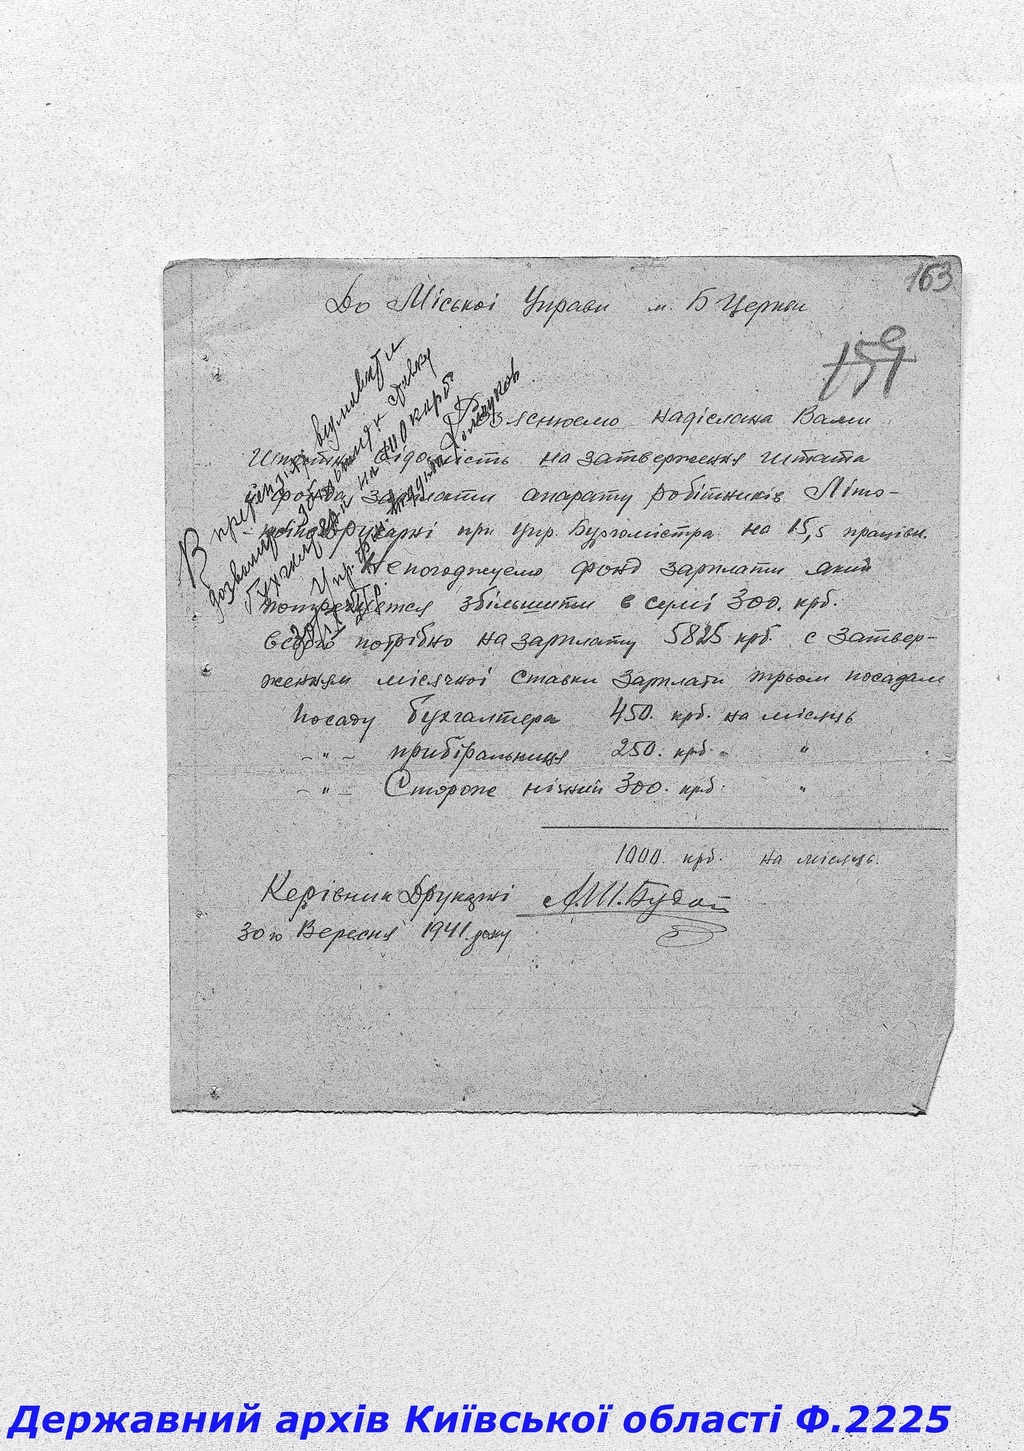 163
До Міської Управи м. Б Церкви
159
Роз'яснюємо надіслана Вами
Штатна відомість на затвердження штата
фонда зарплати апарату робітників Літо-
друкарні при упр. Бургомістра на 15,5 працівн.
Непогоджуємо фонд зарплати який
потребується збільшити в сумі 300. крб.
всього потрібно на зарплату 5825 крб. с затвер-
женням місячної ставки зарплати трьом посадам
Посаду бухгалтера 450. крб. на місяць
– " – прибіральниця 250. крб. "
– " – Сторож нічний 300. крб. "
1000. крб. на місяць.
Керівник Друкарні
30го Вересня 1941 року
В претензії відмовити
дозволити збільшити ставку
бухгалтера на 100 карб.
Державний архів Київської області Ф.2225